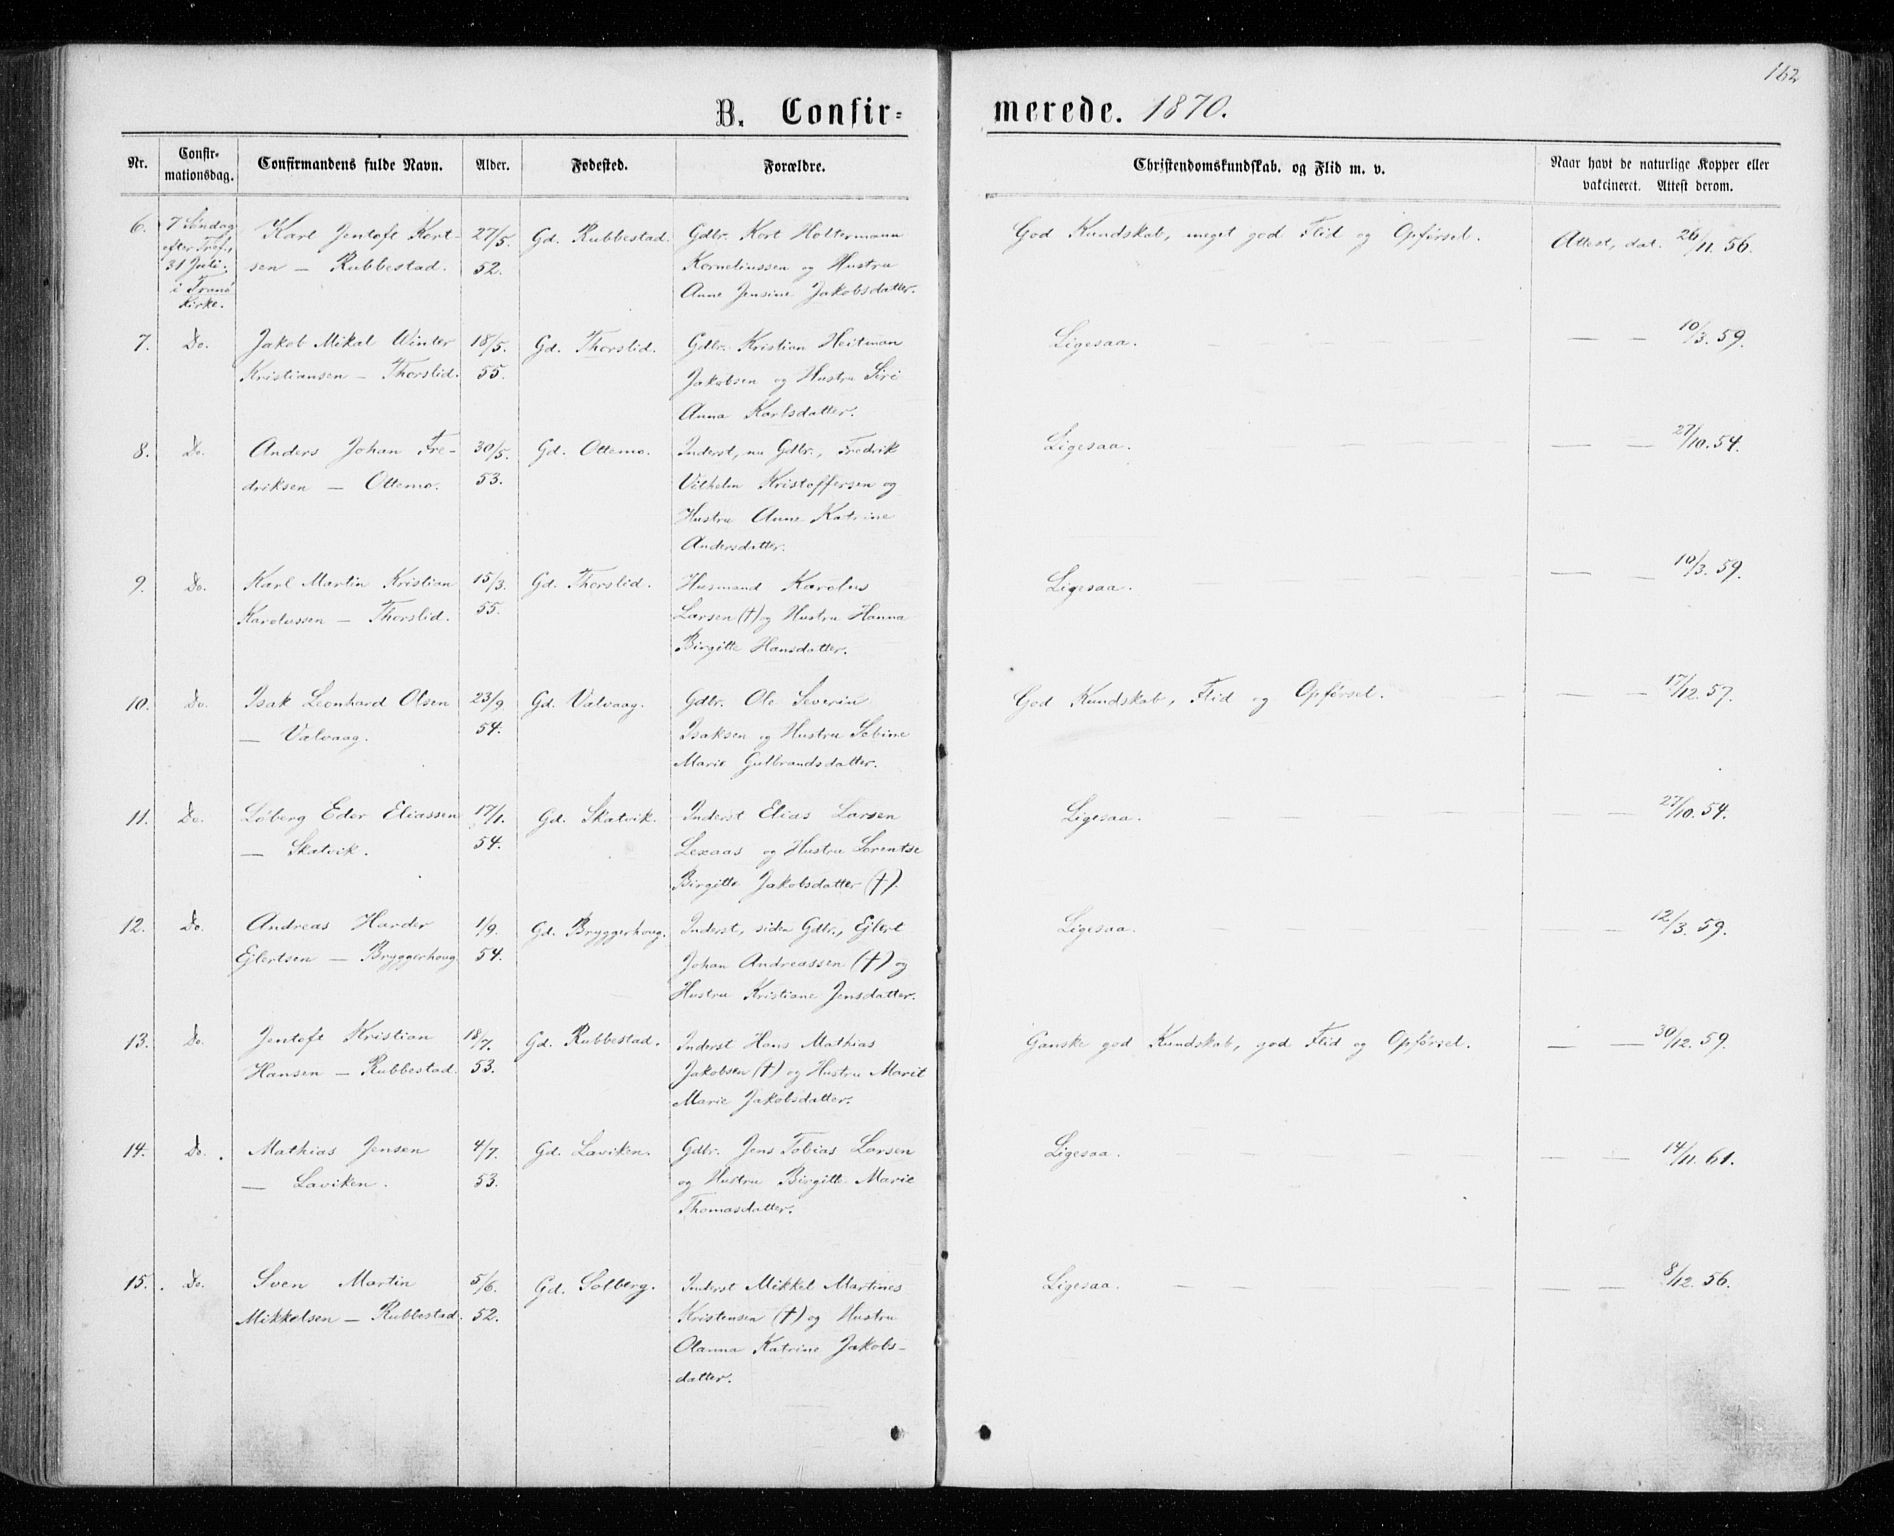 162
B. Confirmerede. 1870.
Nr. | Confirmationsdag. | Confirmandens fulde Navn. | Alder. | Fødested. | Forældre. | Christendomskundskab. og Flid m. v. | Naar havt de naturlige Kopper eller vakcineret. Attest derom.
6. | 7 Søndag | Karl Jentoft Kort- | 27/5. | Gd. Rubbestad. | Gdbr. Kort Holtermann | God Kundskab, meget god Flid og Opførsel. | Attest, dat. 26/11. 56.
efter Tref., | sen — Rubbestad. | 52. | Korneliussen og Hustru
31 Juli | Anne Jensine Jakobsdatter.
i Tranø
Kirke.
7. | Do. | Jakob Mikal Winter | 18/5. | Gd. Thorslid. | Gdbr. Kristian Heitman | Ligesaa. | — — 10/3. 59.
Kristiansen — Thorslid. | 55. | Jakobsen og Hustru Siri
Anna Karlsdatter.
8. | Do. | Anders Johan Fre- | 30/5. | Gd. Ottemo. | Inderst, nu Gdbr., Fredrik | Ligesaa. | — — 27/10. 54.
driksen — Ottemo. | 53. | Vilhelm Kristoffersen og
Hustru Anne Katrine
Andersdatter.
9. | Do. | Karl Martin Kristian | 15/3. | Gd. Thorslid. | Husmand Karolus | Ligesaa. | — — 10/3. 59.
Karolussen — Thorslid. | 55. | Larsen (†) og Hustru Hanna
Birgitte Hansdatter.
10. | Do. | Isak Leonhard Olsen | 23/9 | Gd. Valvaag. | Gdbr. Ole Severin | God Kundskab, Flid og Opførsel. | — — 17/12. 57.
— Valvaag. | 54. | Isaksen og Hustru Sobine
Marie Gulbrandsdatter.
11. | Do. | Løberg Eder Eliassen | 17/1. | Gd. Skatvik. | Inderst Elias Larsen | Ligesaa. | — — 27/10. 54.
— Skatvik. | 54. | Lexaas og Hustru Lorentse
Birgitte Jakobsdatter (†).
12. | Do. | Andreas Harder | 1/9. | Gd. Bryggerhoug. | Inderst, siden Gdbr., Ejlert | Ligesaa. | — 12/3. 59.
Ejlertsen — Bryggerhoug | 54. | Johan Andreassen (†) og
Hustru Kristiane Jensdatter.
13. | Do. | Jentoft Kristian | 18/7. | Gd. Rubbestad. | Inderst Hans Mathias | Ganske god Kundskab, god Flid og Opførsel. | — — 30/12. 59.
Hansen — Rubbestad. | 53. | Jakobsen (†) og Hustru Marit
Marie Jakobsdatter.
14. | Do. | Mathias Jensen | 4/7. | Gd. Laviken. | Gdbr. Jens Tobias Larsen | Ligesaa. | — — 14/11. 61.
— Laviken. | 53. | og Hustru Birgitte Marie
Thomasdatter.
15. | Do. | Sven Martin | 5/6. | Gd. Solberg. | Inderst Mikkel Martines | Ligesaa. | — — 8/12. 56.
Mikkelsen — Rubbestad. | 52. | Kristensen (†) og Hustru
Olanna Katrine Jakobs-
datter.